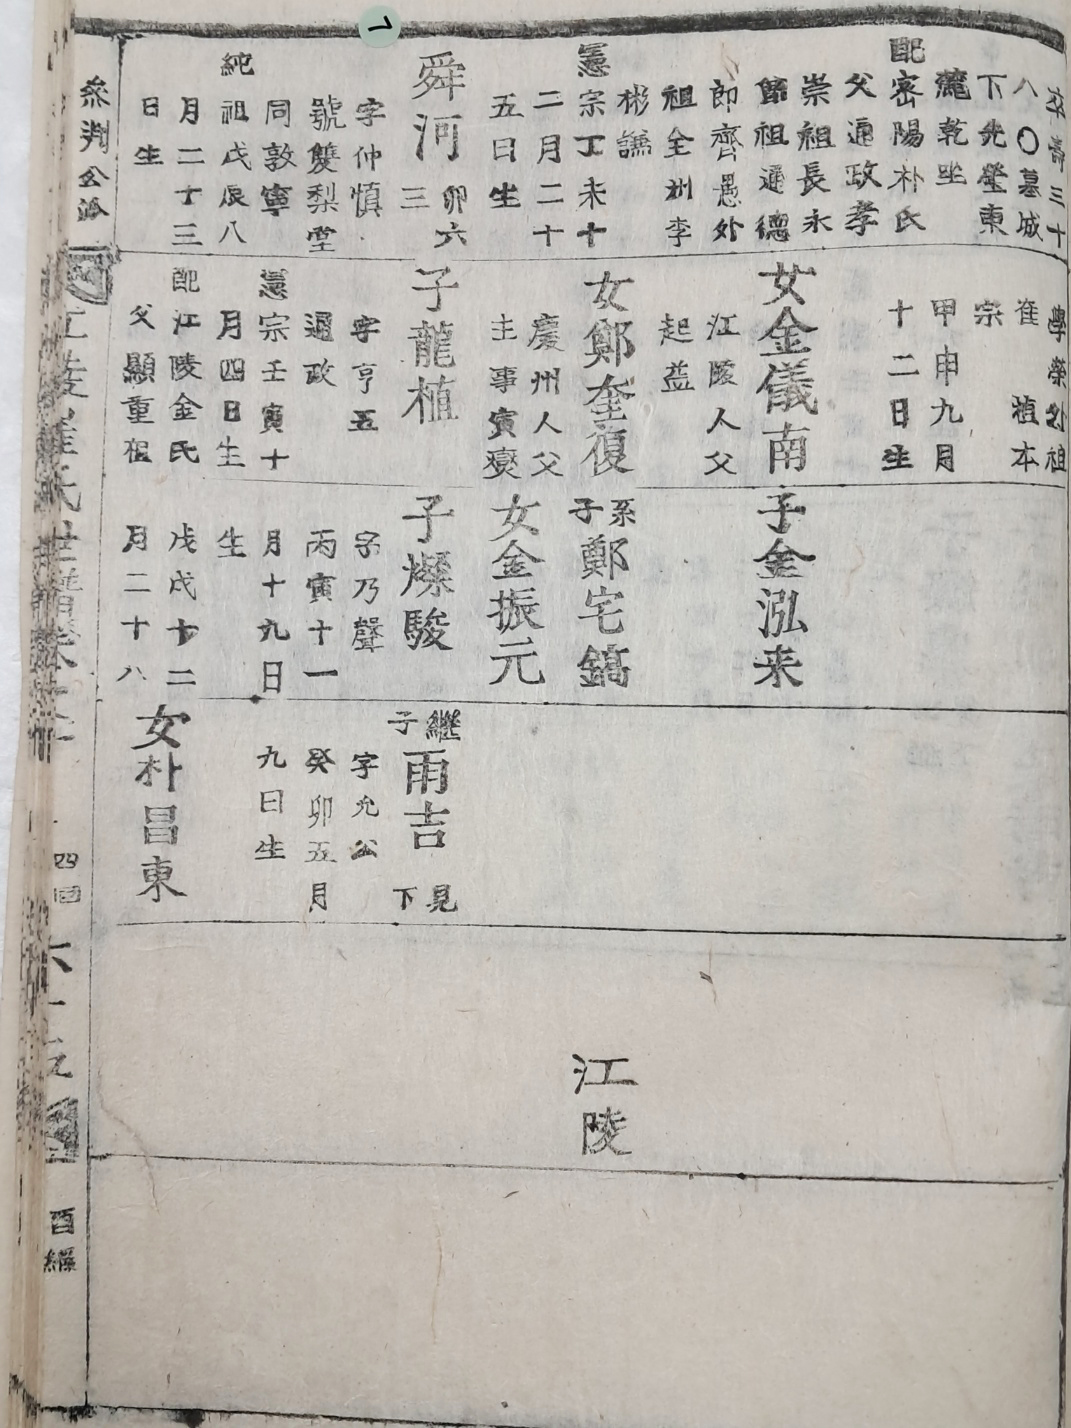 卒壽三十
八〇墓城
下先塋東
麓乾坐
配密陽朴氏
父通政孝
崇祖長永
節祖通德
郎齊愚外
祖全州李
彬謙
憲宗丁未十
二月二十
五日生
舜河
卯六
三
字仲愼
號雙梨堂
同敦寧
純祖戊辰八
月二十三
日生
學榮外祖
崔 植本
宗
甲申九月
十二日生
女金儀南
江陵人父
起益
女鄭奎復
慶州人父
主事寅燮
子龍植
字亨五
通政
憲宗壬寅十
月四日生
配江陵金氏
父顯重祖
子金泓来
系子鄭宅鎬
女金振元
子燦駿
字乃聲
丙寅十一
月十九日
生
戊戌十二
月二十八
繼子雨吉
見下
字允公
癸卯五月
九日生
女朴昌東
江陵
參判公派
江陵崔氏世譜卷之
四囬
酉編
7